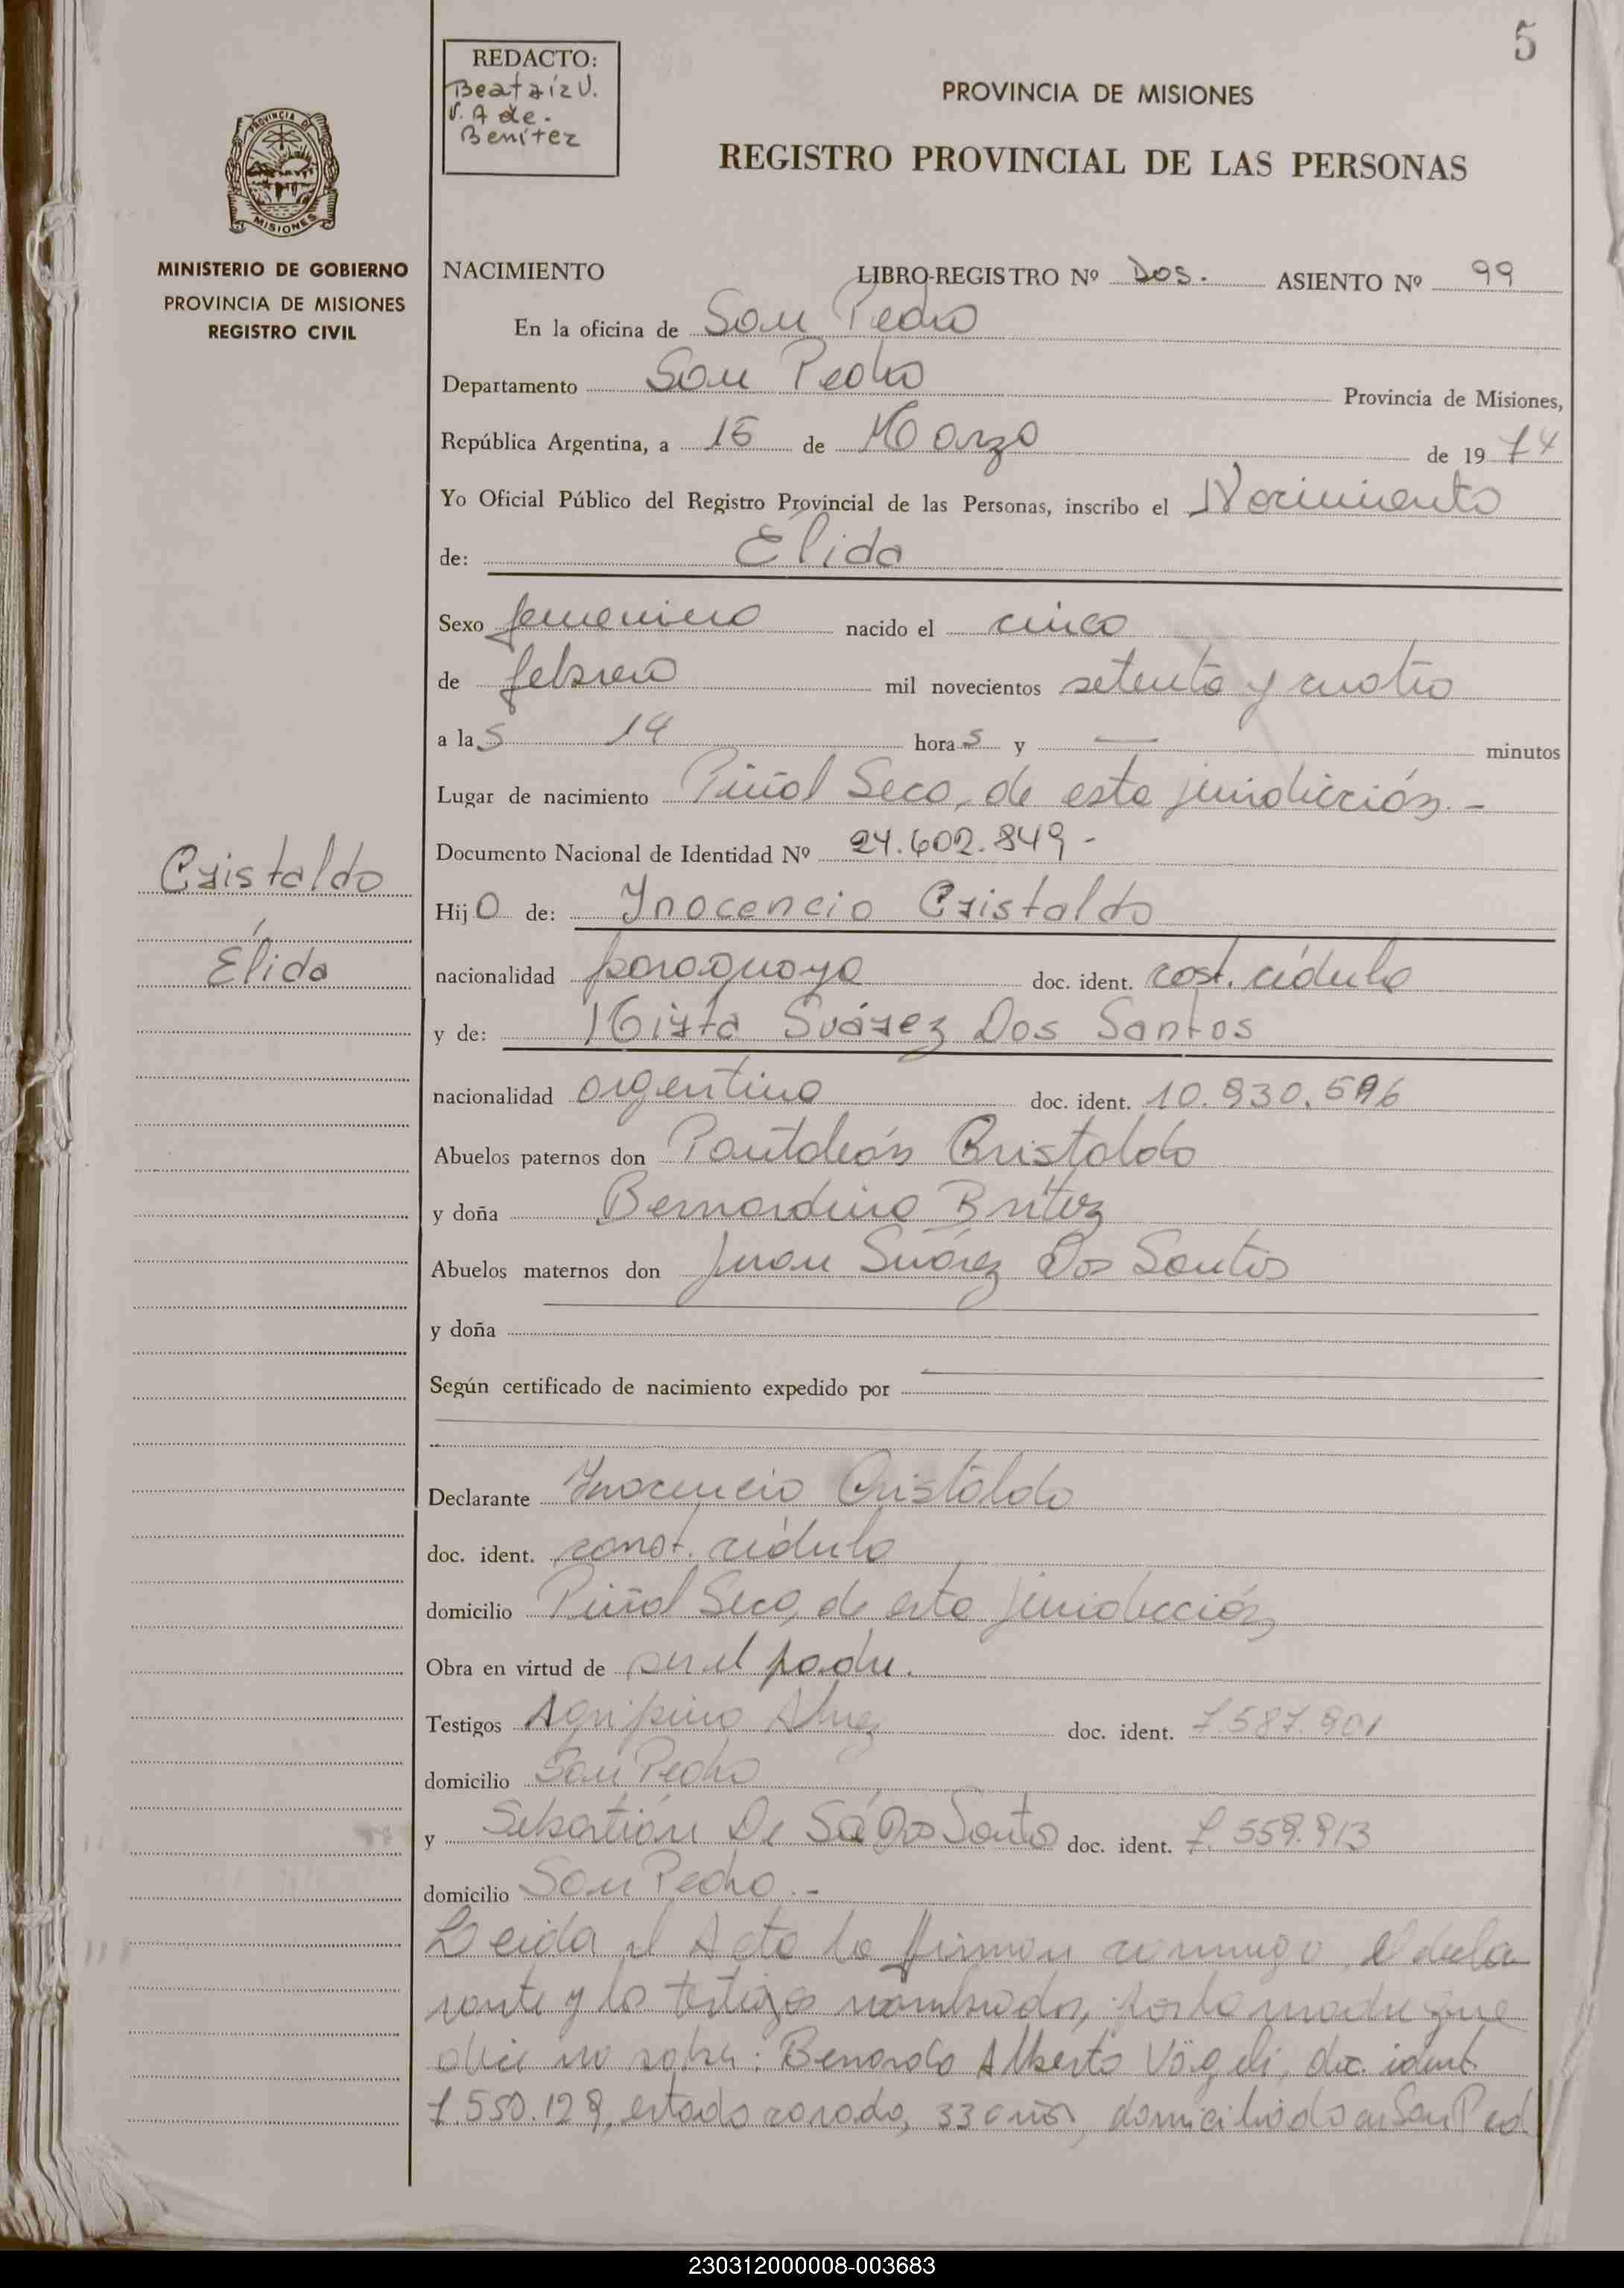 5
REDACTO:
Beatriz V.
V. A de.
Benítez
PROVINCIA DE MISIONES
REGISTRO PROVINCIAL DE LAS PERSONAS
PROVINCIA DE
MISIONES
MINISTERIO DE GOBIERNO
PROVINCIA DE MISIONES
REGISTRO CIVIL
NACIMIENTO LIBRO-REGISTRO Nº Dos. ASIENTO Nº 99
En la oficina de San Pedro
Departamento San Pedro Provincia de Misiones,
República Argentina, a 15 de Marzo de 1974
Yo Oficial Público del Registro Provincial de las Personas, inscribo el Nacimiento
de: Élida
Sexo femenino nacido el cinco
de febrero mil novecientos setenta y cuatro
a las 14 horas y — minutos
Lugar de nacimiento Piñal Seco, de esta jurisdicción.-
Documento Nacional de Identidad Nº 24.602.849-
Cristaldo
Élida
Hija de: Inocencio Cristaldo
nacionalidad paraguaya doc. ident. cost. cédula
y de: Mirta Suárez Dos Santos
nacionalidad argentina doc. ident. 10.930.596
Abuelos paternos don Pantaleón Cristaldo
y doña Bernardina Britez
Abuelos maternos don Juan Suárez Dos Santos
y doña
Según certificado de nacimiento expedido por
Declarante Inocencio Cristaldo
doc. ident. const. cédula
domicilio Piñal Seco, de esta jurisdicción
Obra en virtud de ser el padre.
Testigos Agripino doc. ident. 7.587.901
domicilio San Pedro
y Sebastián De Sá Dos Santos doc. ident. 7.559.913
domicilio San Pedro.-
Leida el Acta la firman conmigo, el decla
rante y los testigos nombrados, por la madre que
dice no saber: Bernardo Alberto Vögeli, doc. ident.
7.550.129, estado casado, 33 años, domiciliado en San Ped
230312000008-003683